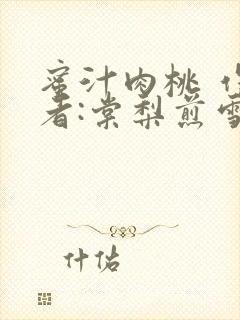 蜜汁肉桃 作
者:棠梨煎雪
什估